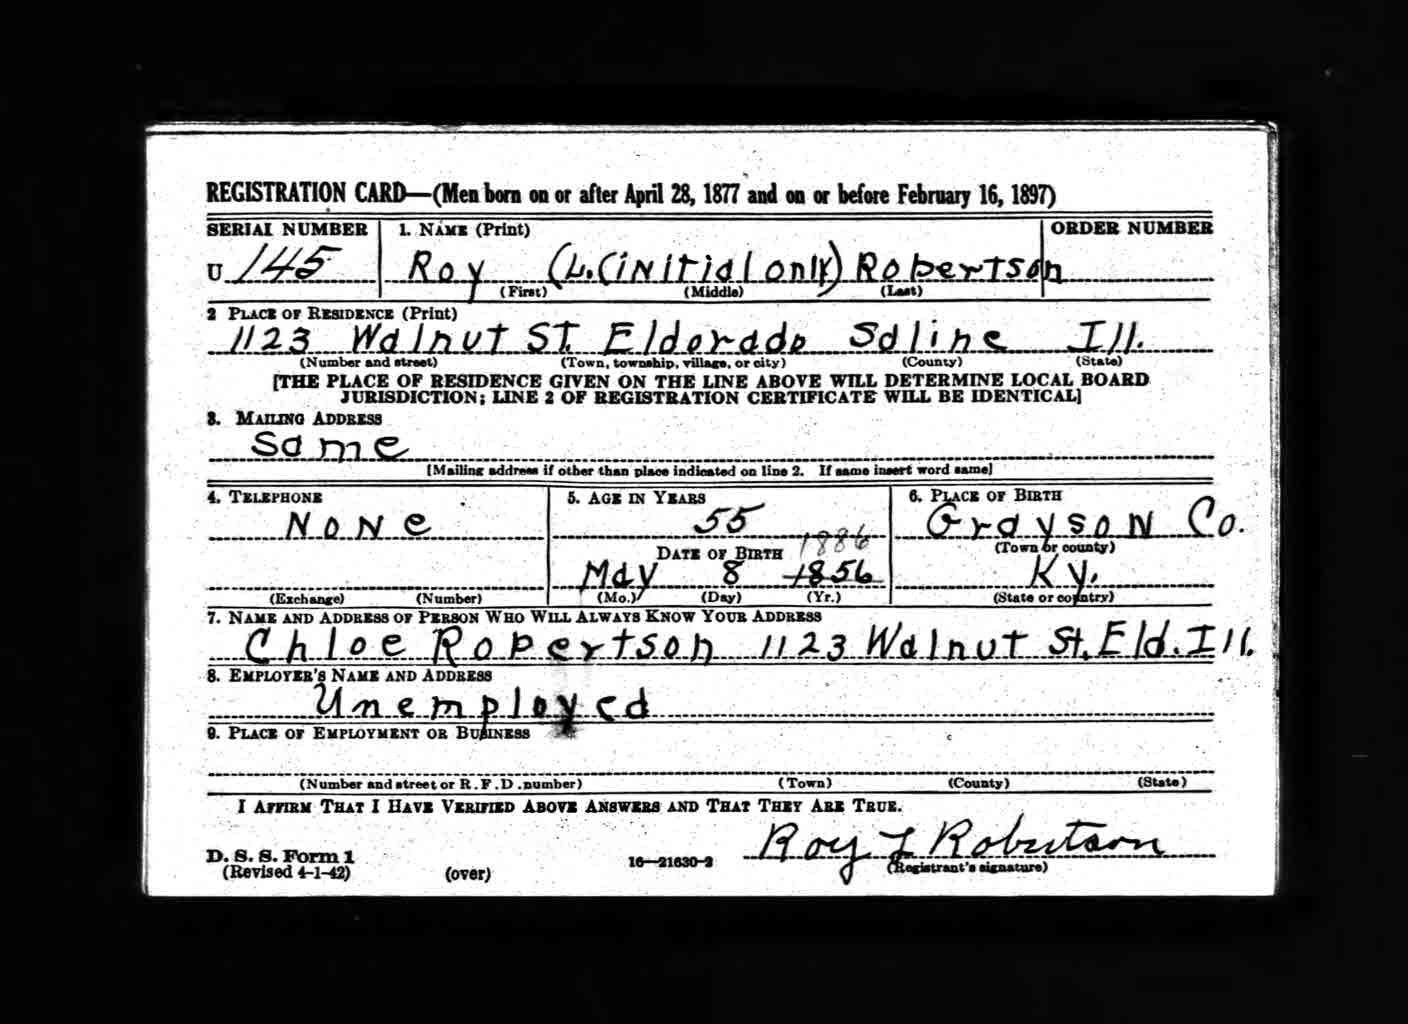 REGISTRATION CARD—(Men born on or after April 28, 1877 and on or before February 16, 1897)
SERIAL NUMBER 1. NAME (Print) ORDER NUMBER
U 145 Roy (L. (initial only) Robertson
(First) (Middle) (Last)
2 PLACE OF RESIDENCE (Print)
1123 Walnut St. Eldorado Saline Ill.
(Number and street) (Town, township, village, or city) (County) (State)
[THE PLACE OF RESIDENCE GIVEN ON THE LINE ABOVE WILL DETERMINE LOCAL BOARD
JURISDICTION; LINE 2 OF REGISTRATION CERTIFICATE WILL BE IDENTICAL]
3. MAILING ADDRESS
Same
[Mailing address if other than place indicated on line 2. If same insert word same]
4. TELEPHONE 5. AGE IN YEARS 6. PLACE OF BIRTH
None 55 Grayson Co.
DATE OF BIRTH 1886 (Town or county)
May 8 1856 Ky.
(Exchange) (Number) (Mo.) (Day) (Yr.) (State or country)
7. NAME AND ADDRESS OF PERSON WHO WILL ALWAYS KNOW YOUR ADDRESS
Chloe Robertson 1123 Walnut St. Eld. Ill.
8. EMPLOYER'S NAME AND ADDRESS
Unemployed
9. PLACE OF EMPLOYMENT OR BUSINESS
(Number and street or R. F. D. number) (Town) (County) (State)
I AFFIRM THAT I HAVE VERIFIED ABOVE ANSWERS AND THAT THEY ARE TRUE.
Roy L Robertson
D. S. S. Form 1 16—21630-2 (Registrant's signature)
(Revised 4-1-42) (over)